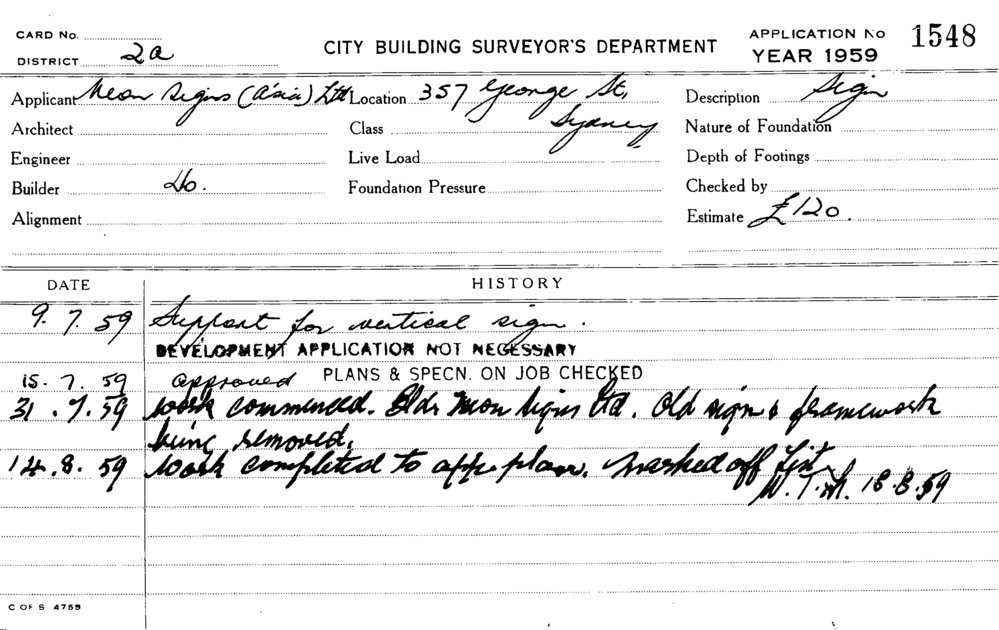 CARD No. CITY BUILDING SURVEYOR'S DEPARTMENT APPLICATION No 1548
DISTRICT 2a YEAR 1959
Applicant Neon Signs (A'sia) Ltd Location 357 George St, Description Sign
Architect Class Sydney Nature of Foundation
Engineer Live Load Depth of Footings
Builder do. Foundation Pressure Checked by
Alignment Estimate £120.
DATE HISTORY
9.7.59 Support for vertical sign.
DEVELOPMENT APPLICATION NOT NECESSARY
15.7.59 approved PLANS & SPECN. ON JOB CHECKED
31.7.59 work commenced. Bldr Neon Signs Ltd. Old sign & framework
being removed.
14.8.59 Work completed to app. plan. Marked off List
18.8.59
C OF S 4755